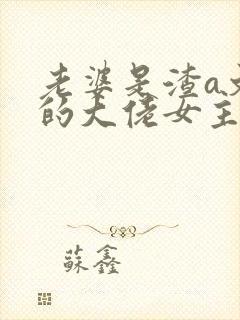 老婆是渣a文
的大佬女主
蘇鑫